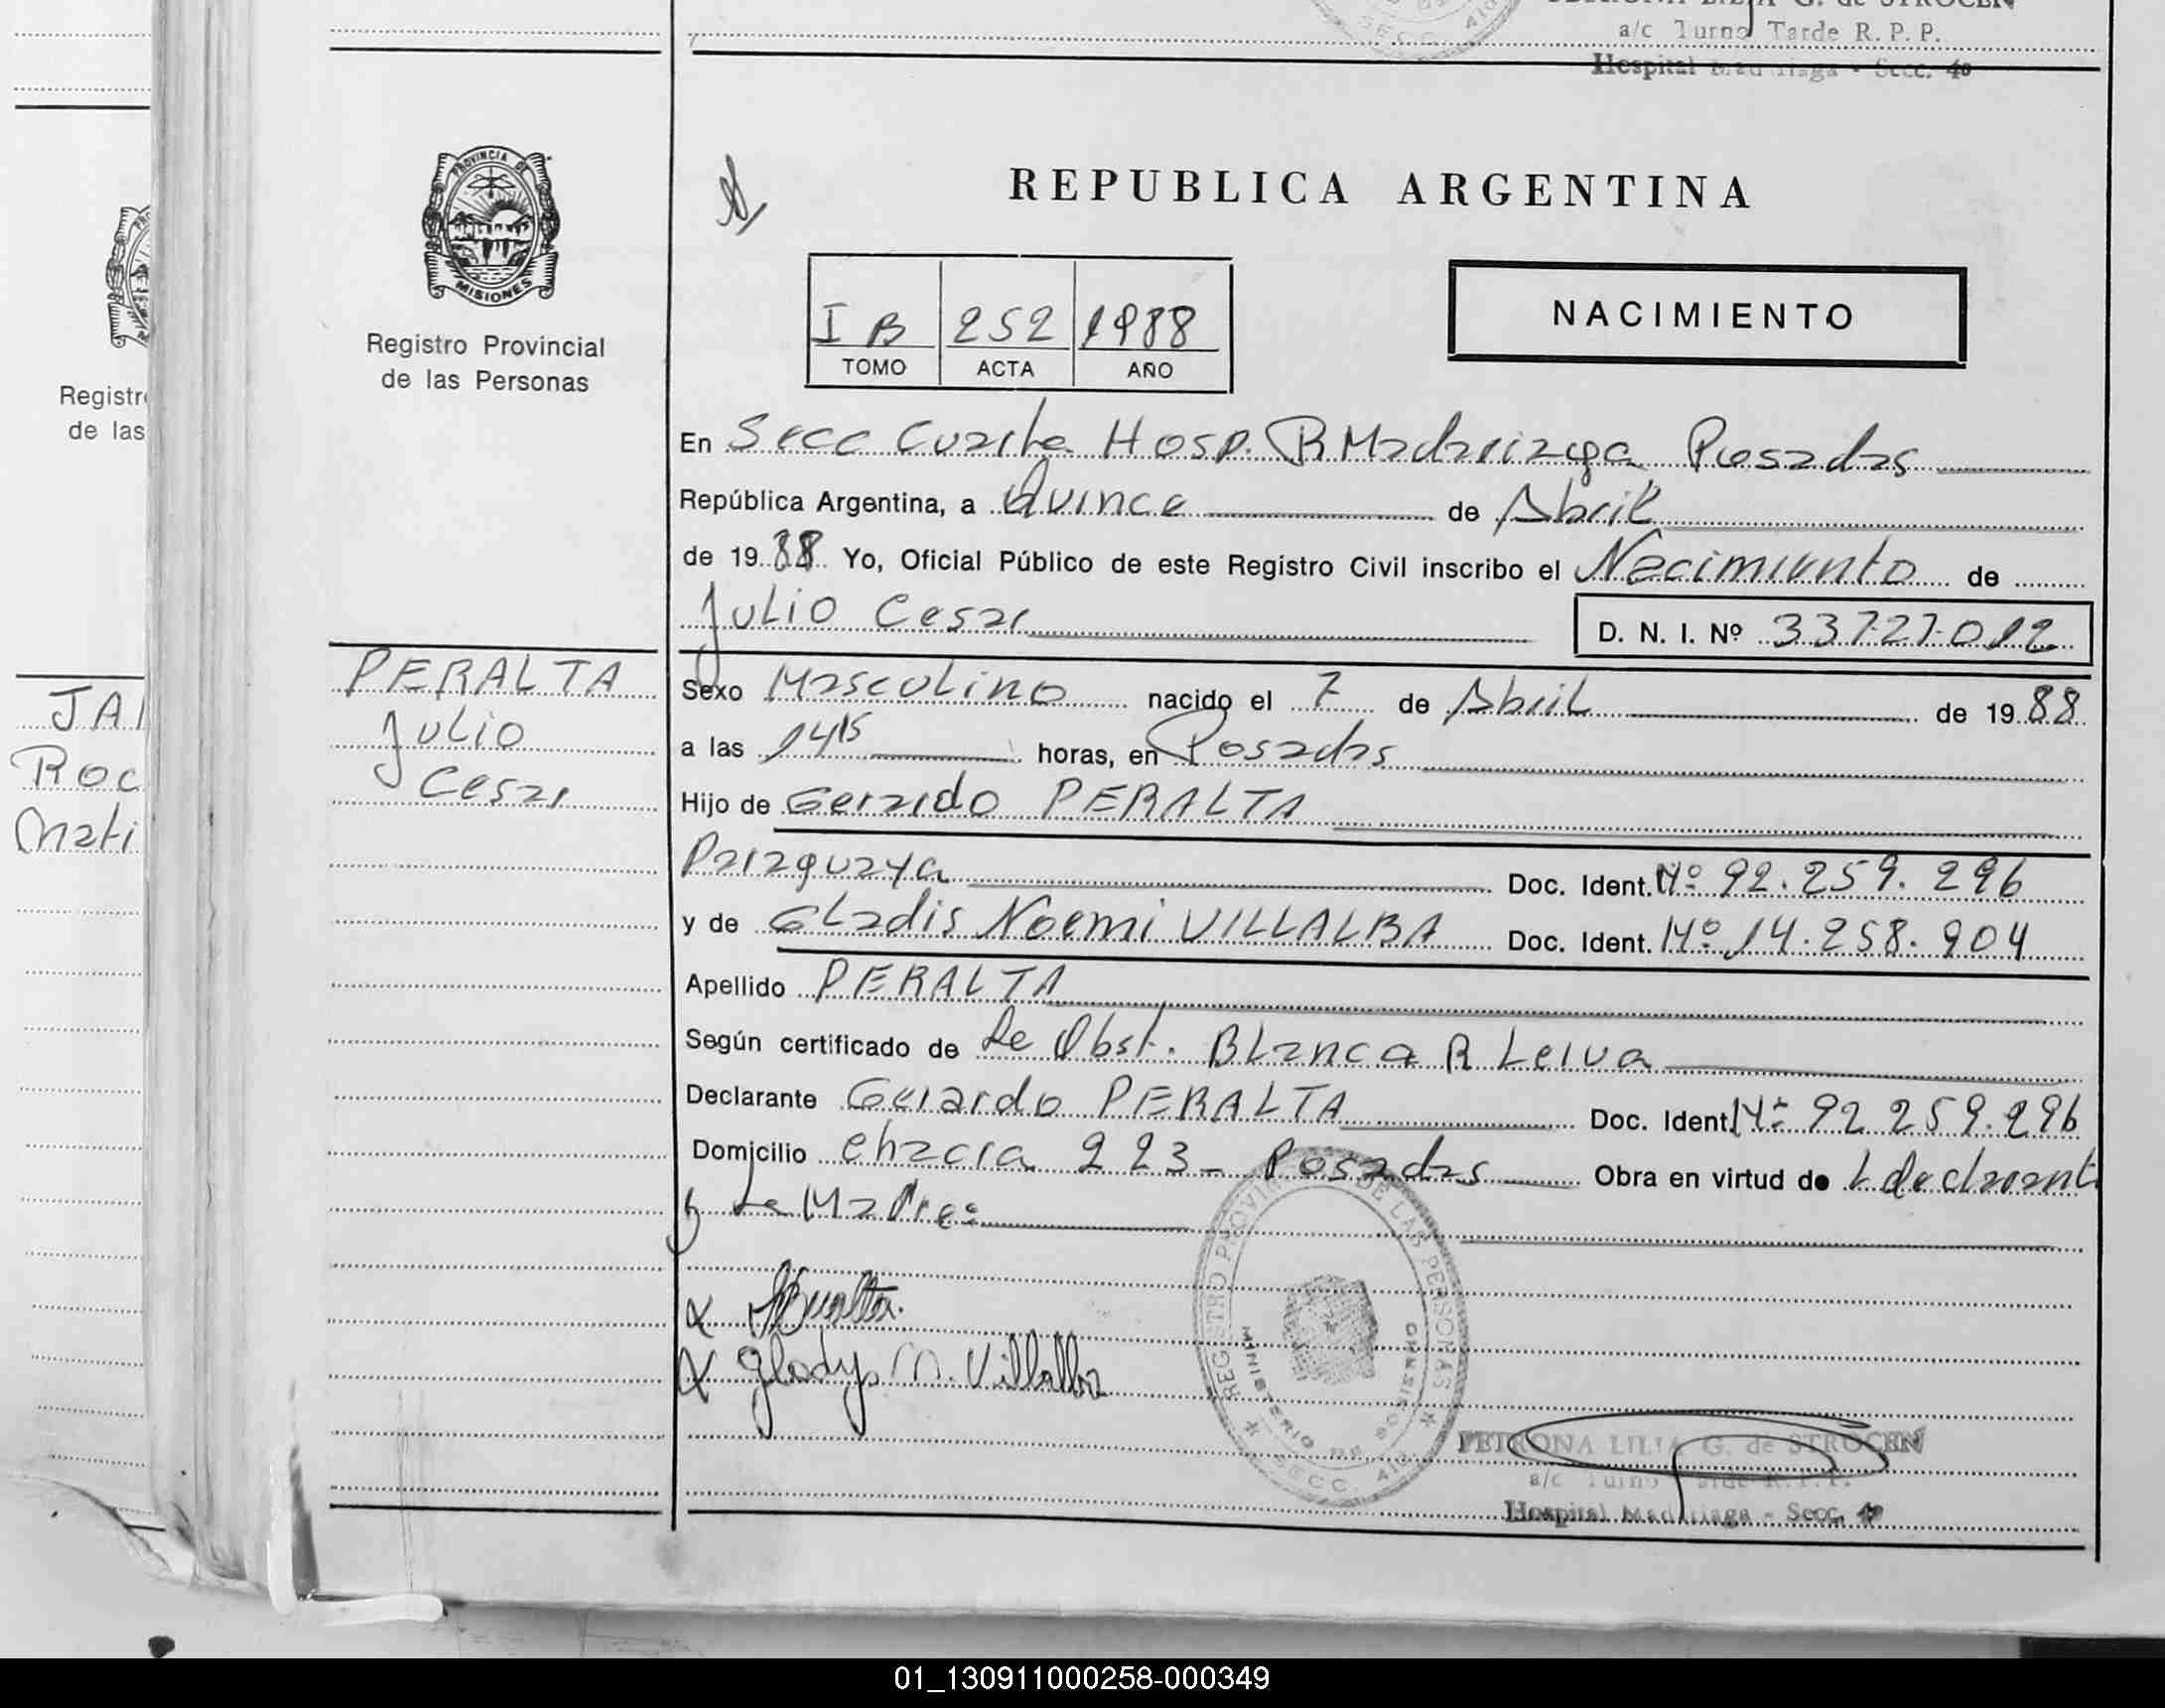 PETRONA LILIA G. de STROCEN
a/c Turno Tarde R. P. P.
Hospital Madariaga - Secc. 4º
SECC. 4ta
PROVINCIA DE
MISIONES
Registro Provincial
de las Personas
REPUBLICA ARGENTINA
I B 252 1988
TOMO ACTA AÑO
NACIMIENTO
En Secc Cuarta Hosp. R Madariaga Posadas
República Argentina, a Quince de Abril
de 1988 Yo, Oficial Público de este Registro Civil inscribo el Nacimiento de
Julio Cesar D. N. I. Nº 33.727.012
PERALTA
Julio
Cesar
Sexo Masculino nacido el 7 de Abril de 1988
a las 14 15 horas, en Posadas
Hijo de Gerardo PERALTA
Paraguaya Doc. Ident. Nº 92.259.296
y de Gladis Noemi VILLALBA Doc. Ident. Nº 14.258.904
Apellido PERALTA
Según certificado de La Obst. Blanca R Leiva
Declarante Gerardo PERALTA Doc. Ident. Nº 92 259.296
Domicilio chacra 223- Posadas Obra en virtud de L declarant
y La Madre:
x Peralta.
x Gladys N. Villalba
REGISTRO PROVINCIAL DE LAS PERSONAS
MINISTERIO DE GOBIERNO
SECC. 4ta
PETRONA LILIA G. de STROCEN
a/c Turno Tarde R. P. P.
Hospital Madariaga - Secc. 4º
Registr
de las
JA
Roc
Mati
01_130911000258-000349